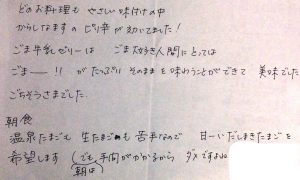 どのお料理も やさしい味付けの中
からしなますの ピリ辛が効いてました!
ごま牛乳ゼリーは ごま好き人間にとっては
ごまー!! が たっぷり そのままを味わうことができて 美味でした
ごちそうさまでした。
朝食
温泉たまごも 生たまごも苦手なので 甘〜いだしまきたまごを
希望します (でも、手間がかかるから ダメですよね
朝は